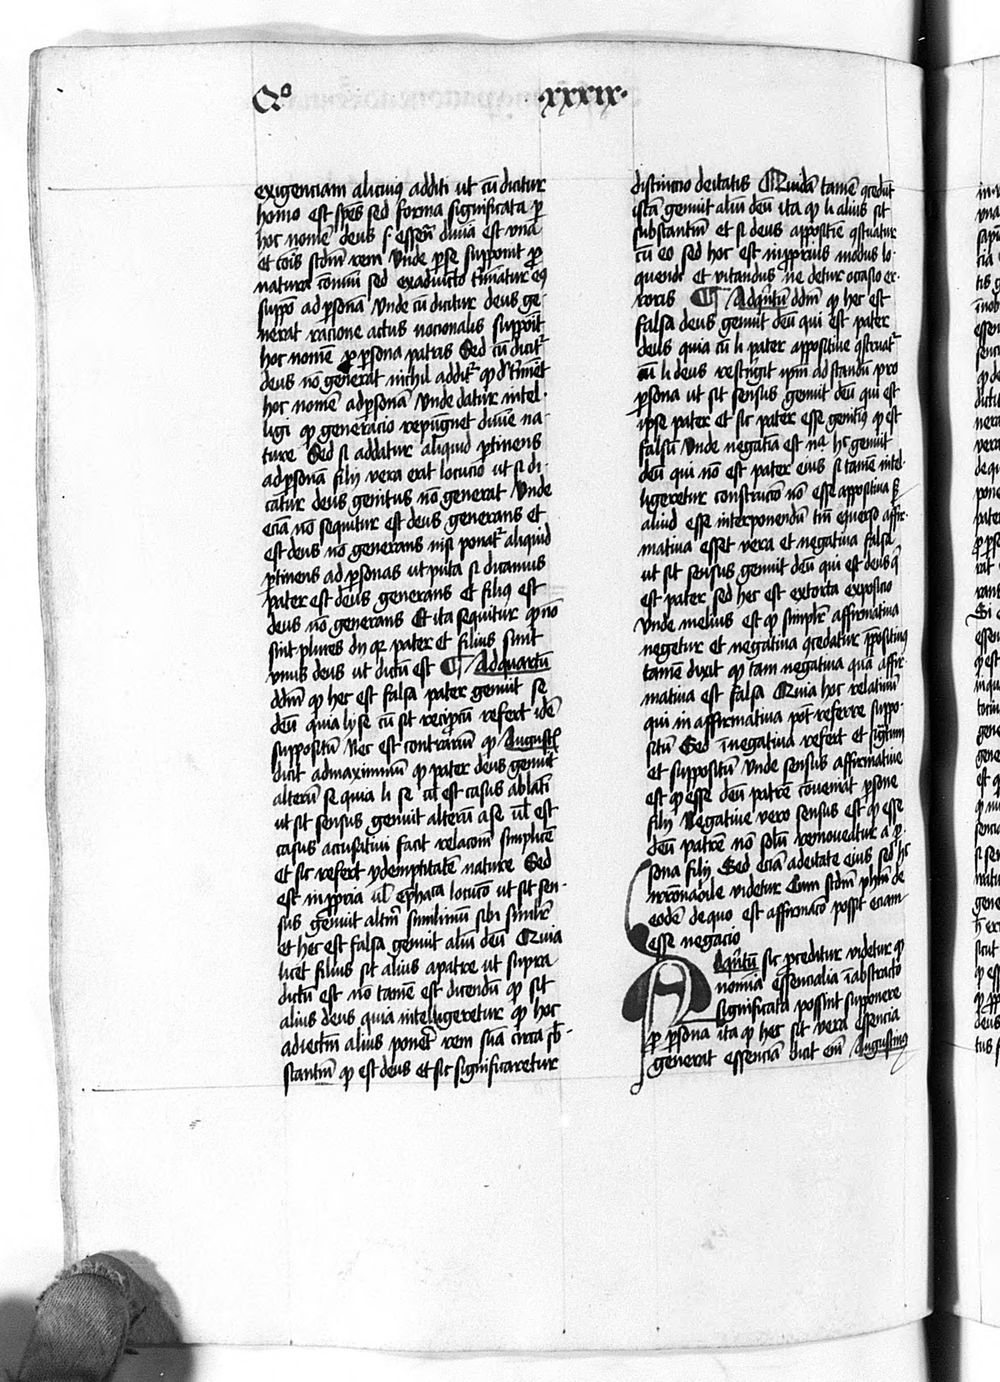 Qº .xxxix.
exigenciam alicuiꝰ additi ut cū dicitur
homo est spēs sed forma significata ꝑ
hoc nomē deus .s. essenᵃ diuīa est una
et cōis scdm rem Unde ꝑ se supponit ꝓ
natura cōmuni sed ex adiūcto t̄minatur eiꝰ
suppō ad ꝑsonā Unde cū dicitur deus ge-
nerat racione actus nocionalis suppōit
hoc nomē ꝓ ꝑsona patris Sed cū dicitᷣ
deus nō generat nichil additᷣ qd det̄minet
hoc nomē ad ꝑsonā Unde datur intel-
ligi ꝙ generacio repūgnet diuine na-
ture Sed si addatur aliquid ꝑtinens
ad ꝑsonā filij vera erit locucio ut si di-
catur deus genitus nō generat Unde
eciā nō sequitur est deus generans et
est deus nō generans nisi ponatᷣ aliquid
ꝑtinens ad ꝑsonas ut puta si dicamus
pater est deus generans et filiꝰ est
deus nō generans Et ita sequitur ꝙ nō
sint plures dij qꝛ pater et filius sunt
vnus deus ut dictū est ¶ Ad quartū
ddm ꝙ hec est falsa pater genuit se
deū quia ly se cū sit recipcū refert idē
suppositū Nec est contrariū ꝙ Augustꝰ
dicit ad maximinū ꝙ pater deus genuit
alterū se quia li se ul est casus ablatī
ut sit sensus genuit alterū a se ul est
casus accusatiui facit relacōm simplicē
et sic refert ydemptitatē nature Sed
est impropria ul emphatica locucō ut sit sen-
sus genuit altm simillimū sibi similr
et hec est falsa genuit aliū deū Quia
licet filius sit alius a patre ut supra
dictū est nō tamē est dicendū ꝙ sit
alius deus quia intelligeretur ꝙ hoc
adiectm alius ponet rem suā circa sb-
stantm ꝙ est deus et sic significaretur
distinctio deitatis Quidā tamē ꝯcedūt
istā genuit aliū deū ita ꝙ li alius sit
substantm et li deus appositiē ꝯstruatur
cū eo sed hoc est impprius modus lo-
quendi et vitandus ne detur occasio er-
roris ¶ Ad qⁱntū ddm ꝙ hec est
falsa deus genuit deū qui est pater
deus quia cū li pater appositiue ꝯstruatᷣ
cū li deus restringit ipm ad standū pro
ꝑsona ut sit sensus genuit deū qui est
ipse pater et sic pater esset genitꝰ ꝙ est
falsū Unde negatiā est vᵃ hᵒ genuit
deū qui nō est pater eius si tamē intel-
ligeretur construccō nō esse appositiua s̄
aliud esse interponendū tūc econuerso affir-
matiua esset vera et negatiua falsa
ut sit sensus genuit deū qui est deus qⁱ
est pater sed hec est extorta exposicio
Unde melius est ꝙ simplr affirmatiua
negetur et negatiua ꝯcedatur ppositiuꝰ
tamē dixit ꝙ tam negatiua quā affir-
matiua est falsa Quia hoc relatiuū
qui in affirmatiua pōt referre suppo-
sitū Sed ī negatiua refert et sigtum
et suppositū Unde sensus affirmatiue
est ꝙ esse deū patrē conueniat ꝑsone
filij Negatiue vero sensus est ꝙ esse
deū patrē nō solū remoueatur a ꝑ-
sona filij Sed eciā a deitate eius sed hᵒ
irracionabile videtur Cum scdm phm de
eodē de quo est affirmacō possit eciam
esse negacio
Ad qⁱntū sic ꝓceditur videtur ꝙ
nomīa essencialia ī abstracto
significata possint supponere
ꝓ ꝑsona ita ꝙ hec sit vera essencia
generat essenciā dicit eni Augustinꝰ